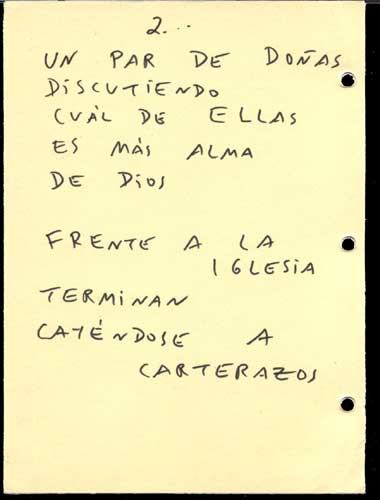 2...
UN PAR DE DOÑAS
DISCUTIENDO
CUÁL DE ELLAS
ES MÁS ALMA
DE DIOS
FRENTE A LA
IGLESIA
TERMINAN
CAYÉNDOSE A
CARTERAZOS